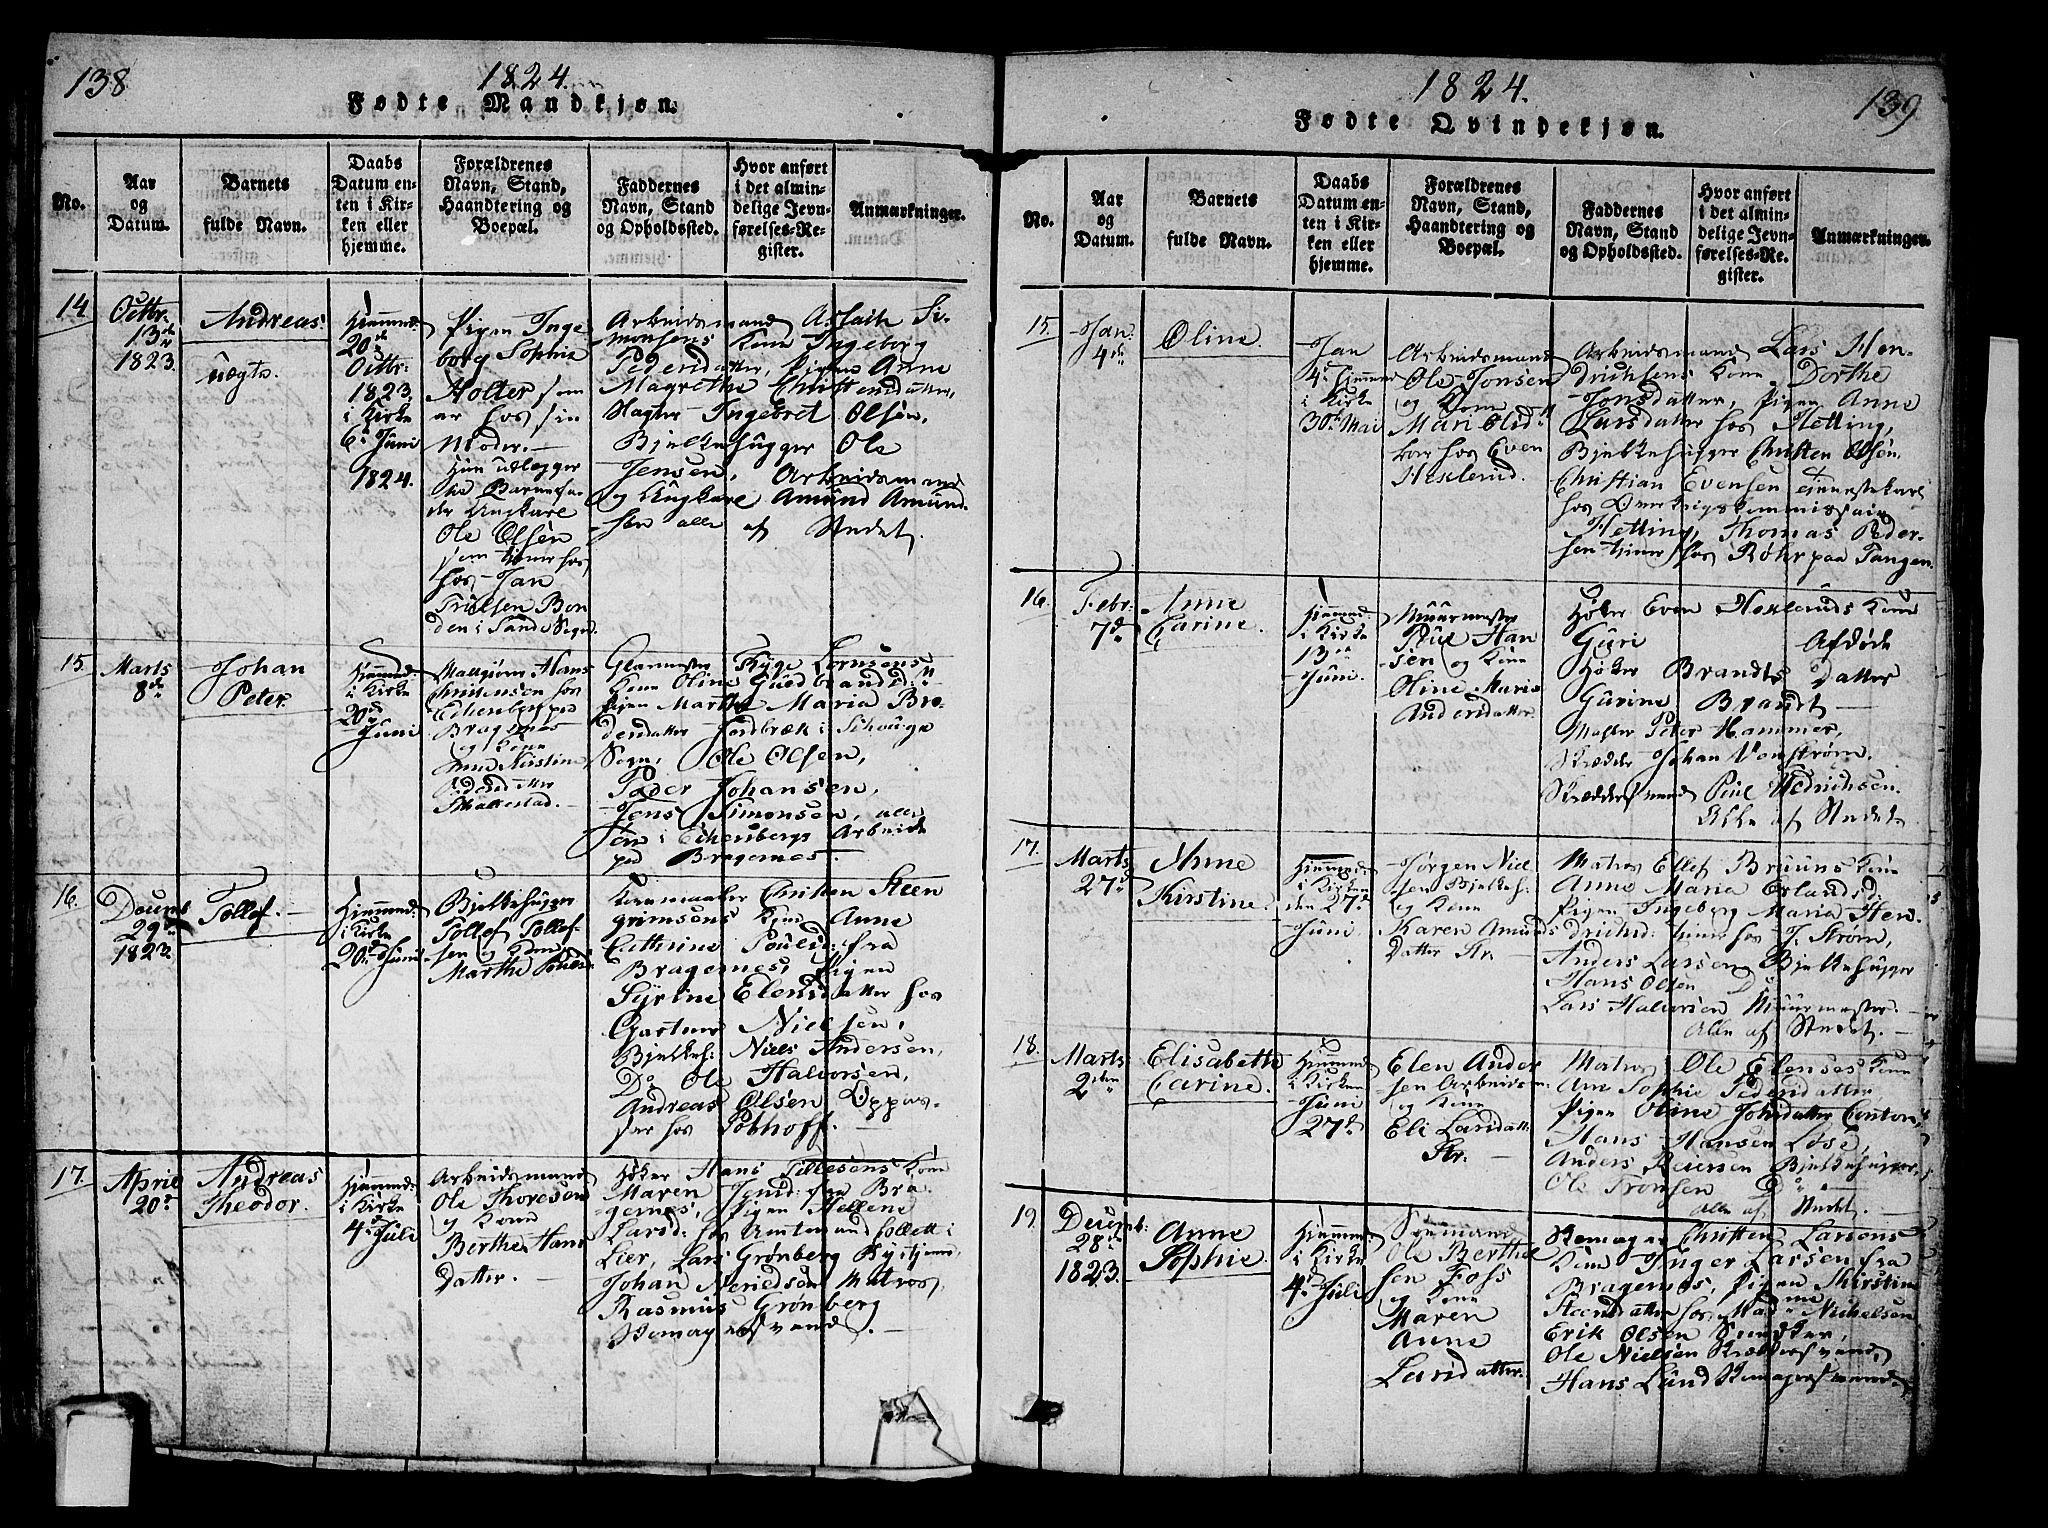 138
1824.
Fødte Mandkjøn.
No.
Aar
og
Datum.
Barnets
fulde Navn.
Daabs
Datum en-
ten i Kir-
ken eller
hjemme.
Forældrenes
Navn, Stand,
Haandtering og
Boepæl.
Faddernes
Navn, Stand
og Opholdssted.
Hvor anført
i det almin-
delige Jevn-
førelses-Re-
gister.
Anmærkninger.
14.
Octbr.
13de
1823.
Andreas.
uægte.
Hjemmed:
20de
Octbr:
1823.
i Kirke
6te Juni
1824.
Pigen Inge
borg Sophie
Holter som
er hos sin
Moder.
Hun udlægger
til Barnefa-
der Ungkarl
Ole Olsen
som tjener hos
hos Jan
Truelsen Bon
den i Sande Sogn.
Arbeidsmand Aslath Si-
monsens Kone Ingeborg
Pedersdatter, Pigen Anne
Magrethe Christensdatter,
Slagter Ingebret Olsen,
Bjelkehugger Ole
Jensen, Arbeidsmand
og Ungkarl Amund Amund-
sen alle af Stedet.
15.
Marts
8de
Johan
Peter.
Hjemmed:
i Kirke
20de
Juni
Hans
Christensen hos
Eckenberg paa
Bragernes
og Kone
Anne Kirstine
Pedersdatter
Glarmester Thyge Lornsens
Kone Oline Gudbrandsd.
Pigen Marthe Maria Bre-
densdatter Jordbræk i Schouge
Sogn, Ole Olsen,
Peder Johansen,
Jens Simonsen, alle
tjen i Eckenbergs Arbeide
paa Bragernes.
16.
Decemb
29de
1823.
Tollef.
Hjemmed:
i Kirke
20de Juni
Bjelkehugger
Tollef Tollef-
sen og Kone
Marthe Poulsd.
Kornmaaler Christen Steen
grimsens Kone Anne
Cathrine Poulsd: fra
Bragernes, Pigen
Syrine Elensdatter hos
Gartner Nielsen,
Bjelkeh: Niels Andersen,
Do Ole Halvorsen,
Andreas Olsen Oppas-
ser hos Pobhoff.
17.
April
20de
Andreas
Theodor.
Hjemmed:
i Kirke
4de Juli
Arbeidsmand
Ole Thoresen
og Kone
Berthe Hans
Datter.
Høker Hans Tillesens Kone
Maren fra Bra-
gernes, Pigen Hellene
Larsd: hos Amtmand Collett i
Lier, Lars Grønberg
Johan Matros,
Rasmus Grønberg
Skomagersvend.
139
1824.
Fødte Qvindekjøn.
No.
Aar
og
Datum.
Barnets
fulde Navn.
Daabs
Datum en-
ten i Kir-
ken eller
hjemme.
Forældrenes
Navn, Stand,
Haandtering og
Boepæl.
Faddernes
Navn, Stand
og Opholdssted.
Hvor anført
i det almin-
delige Jevn-
førelses-Re-
gister.
Anmærkninger.
15.
Jan.
4de
Oline.
Jan
4de Hjemmed
i Kirke
30te Mai
Arbeidsmand
Ole Jonsen
og Kone
Mari Olsd
boer hos Even
Hexlerud.
Arbeidsmand Lars Hen-
drichsens Kone Dorthe
Jonsdatter, Pigen Anne
Larsdatter hos Hetting,
Bjelkehugger Christen Olsen
Christian Evensen
hos Overkrigskommissair
Hetting, Thomas Peder-
sen tjener hos Røhr paa Tangen.
16.
Febr:
7de
Anne
Carine.
Hjemmed:
i Kirke
13de
Juni.
Muurmester
Poul Han
sen og Kone
Oline Marie
Andersdatter.
Høker Even Hexleruds Kone
Guri Afdøde
Høker Brandts Datter
Gurine Brandt
Peter Hammer,
Skredder Johan Wenstrøm,
Skreddersvend Poul Hedrichsen.
Alle af Stedet.
17.
Marts
27de
Anne
Kirstine.
Hjemmed:
i Kirken
den 27de
Juni.
Jørgen Niel
sen Bjelkeh:
og Kone
Karen Amunds
Datter Str.
Matros Ellef Bruuns Kone
Anne Maria Erlandsd:
Pigen Ingeborg Maria Hen-
drichsd: tjener hos J. Strøm,
Anders Larsen Bjelkehugger
Hans Olsen Do
Lars Halvorsen Muurmester.
Alle af Stedet.
18.
Marts
2den
Elisabeth
Carine.
Hjemmed:
i Kirken
Juni
27de
Elen Ander
sen Arbeidsm:
og Kone
Eli Larsdatt.
Str.
Matros Ole Elenses Kone
Ane Sophie Pedersdatter,
Pigen Oline Johsdatter Conton,
Hans Hansen Løse,
Anders Reiersen Bjelkehugger,
Ole Tronsen Do
Alle af Stedet.
19.
Decemb:
28de
1823.
Anne
Sophie.
Hjemmed:
i Kirke
4de Juli
Søemand
Ole Berthel
sen Foss
og Kone
Maren
Anne
Larsdatter.
Skomager Christen Larsens
Kone Inger Larsen fra
Bragernes, Pigen Kirstine
Steensdatter hos Mad: Michelsen
Erik Olsen Snedker,
Ole Nielsen Skreddersvend,
Hans Lund Skomagersvend.